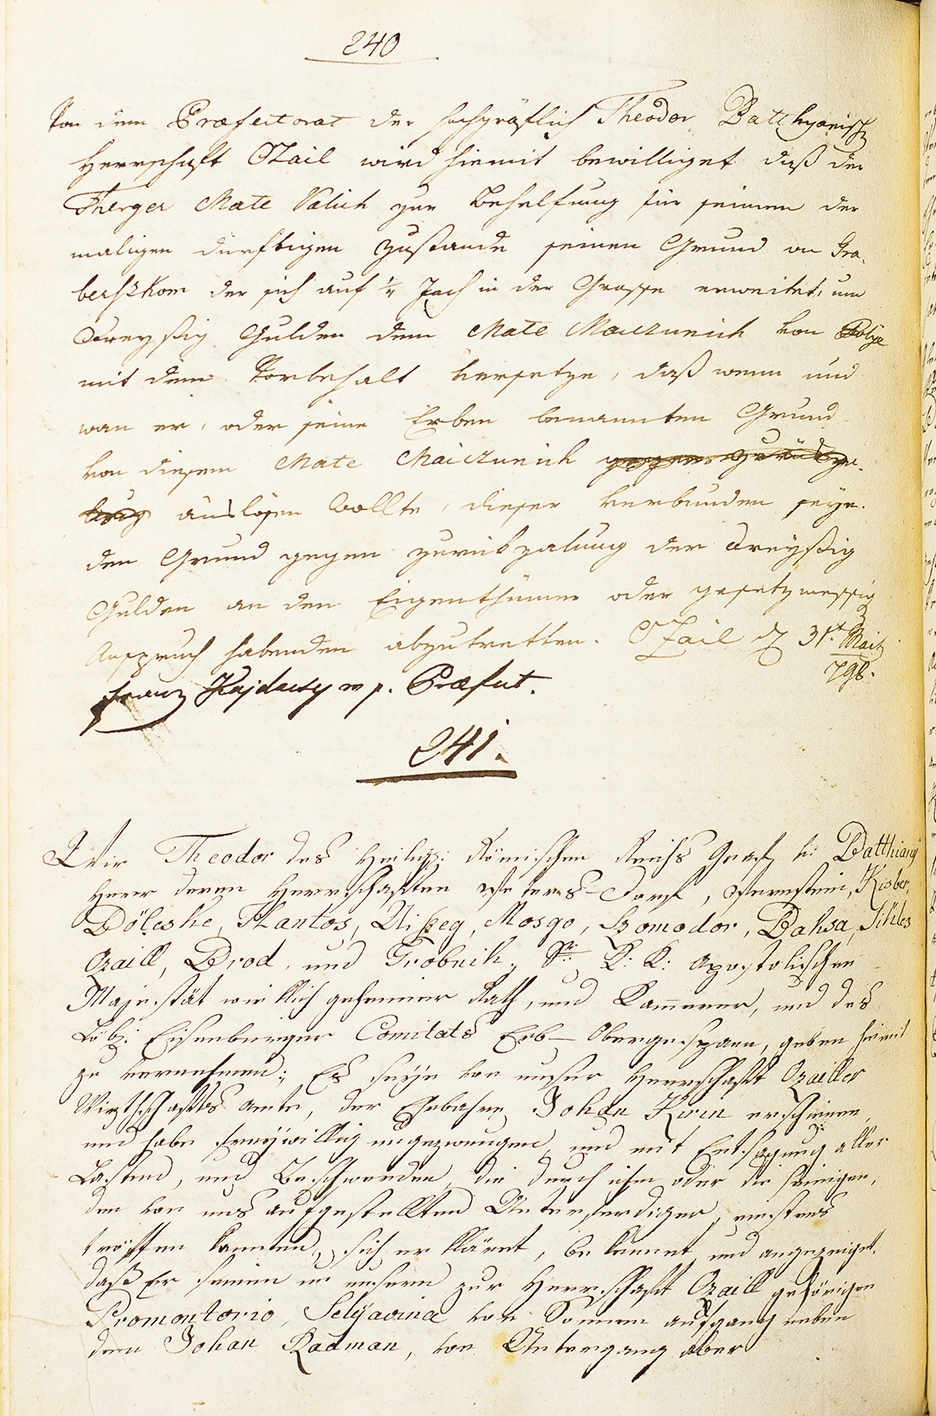 240
Von dem Præfectorat der hochgräflich Theodor Battkyanisch
Herrschaft Ozail wird hiemit bewilliget daß der
Therger Mate Valich zur Behelfung für seinen der
maligen dürftigen Zustande seinen Grund on Gra-
berszkom der sich auf ¼ Joch in der Grosse erweitet, um
Dreyßig Gulden dem Mate Maiczunich von Polye
mit dem Vorbehalt versetze, daß wenn und
wan er, oder seine Erben benannten Grund
von diesem Mate Maiczunich
auslösen wollte, dieser verbunden seye
den Grund gegen zurükzalung der Dreyßig
Gulden an den Eigenthümer oder gesetzmessig
Anspruch habenden abzutretten. Ozail d 31t Maii
798.
Franz Hajdacsy m p. Præfect.
241.
Wir Theodor des Heilig: Römischen Reichs Graf v: Batthiani
Herr deren Herrschaften Unters-Dorf, Bernstein, Kisber,
Döleshe, Kantos, Uißeg, Mosgo, Szomodor, Daksa, Siklos
Ozaill, Brod, und Grobnik, Sr: K: K: Apostolischen
Majestät wirklich geheimer Rath, und Kammerer, und des
Löb: Eisenburger Comitats Erb-Obergespann, geben hiemit
zu vernehmen; Es seye von unser Herrschaft Ozailler
Wirthschafts amte, der Ehebahre Johan Kirin erschienen
und habe freywillig ungezwungen und mit Entsagung aller
Lasten, und Beschwerden die durch ihn oder die seinigen,
den von uns aufgestellten Unterferdiger, einstens
tröffen kennten, sich erkläret, bekennet und angezeiget,
daß Er seinen in unsern zur Herrschaft Ozaill gehörigen
Promontorio, Selyavina von Sonnen aufgang neben
dem Johan Radman, von Untergang aber